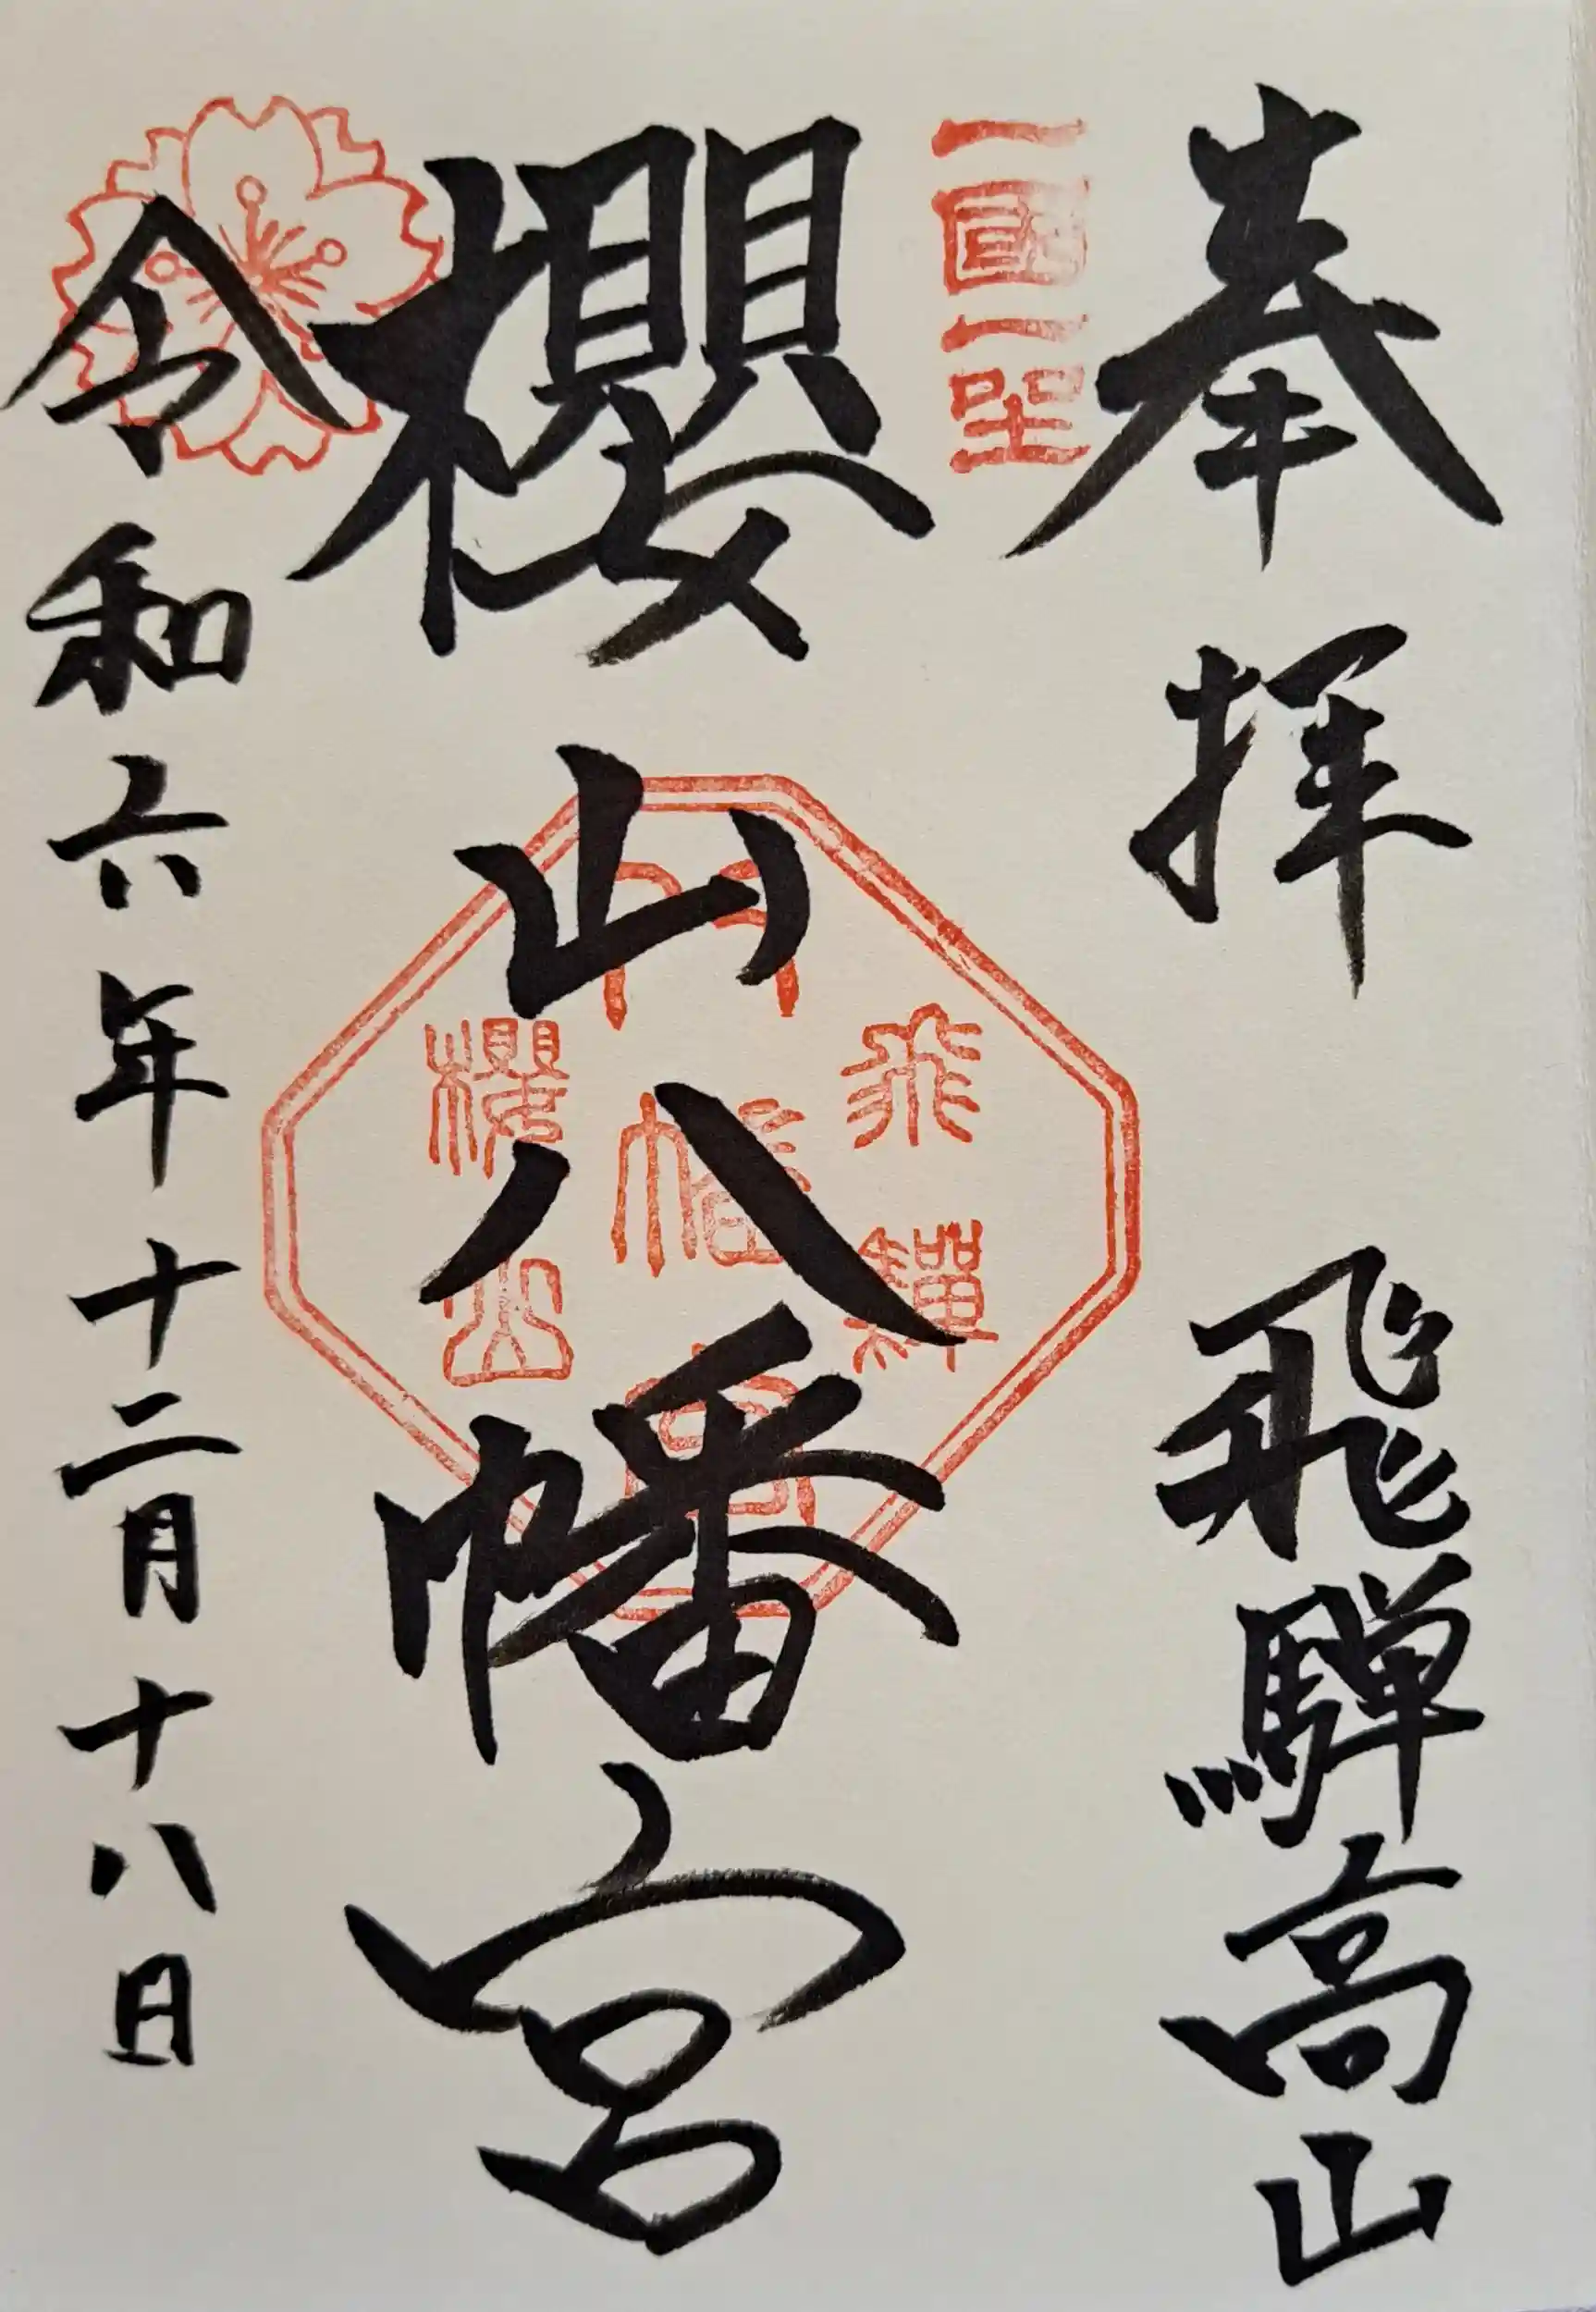 奉拝
飛騨高山
一國一社八幡宮
櫻山八幡宮
飛驒
八幡宮
櫻山
令和六年十二月十八日